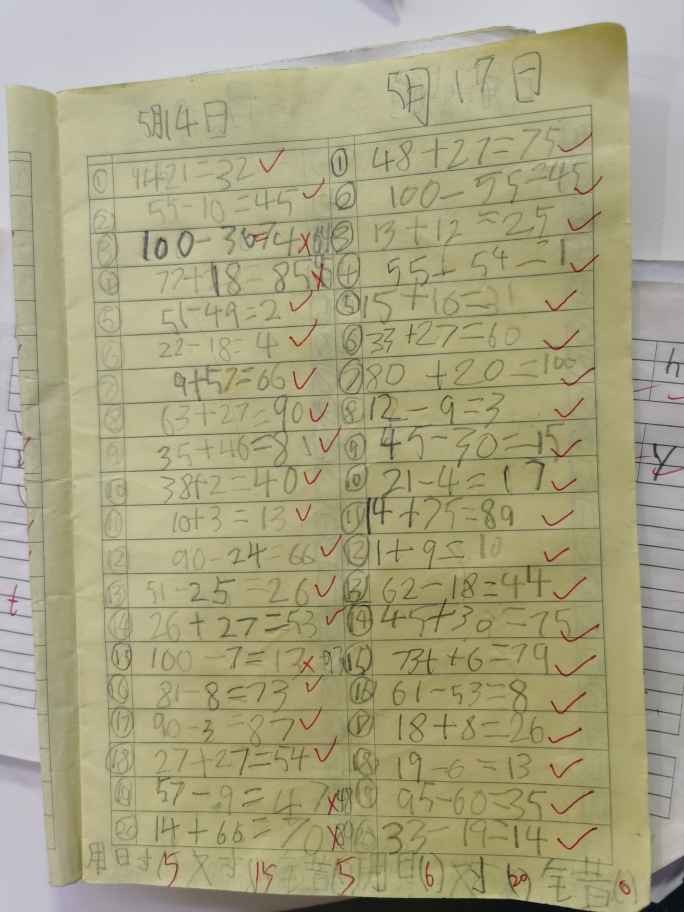 5月14日
5月17日
① 11+21=32 ✓
② 55-10=45 ✓
③ 100-36=74 ×
④ 77+18=85 ×
⑤ 51-49=2 ✓
⑥ 22-18=4 ✓
⑦ 9+57=66 ✓
⑧ 63+27=90 ✓
⑨ 35+46=81 ✓
⑩ 38+2=40 ✓
⑪ 10+3=13 ✓
⑫ 90-24=66 ✓
⑬ 51-25=26 ✓
⑭ 26+27=53 ✓
⑮ 100-7=13 × 93
⑯ 81-8=73 ✓
⑰ 90-3=87 ✓
⑱ 27+27=54 ✓
⑲ 57-9=47 × 48
⑳ 14+66=70 ×
① 48+27=75 ✓
② 100-55=45 ✓
③ 13+12=25 ✓
④ 55-54=1 ✓
⑤ 15+16=31 ✓
⑥ 33+27=60 ✓
⑦ 80+20=100 ✓
⑧ 12-9=3 ✓
⑨ 45-30=15 ✓
⑩ 21-4=17 ✓
⑪ 14+75=89 ✓
⑫ 1+9=10 ✓
⑬ 62-18=44 ✓
⑭ 45+30=75 ✓
⑮ 73+6=79 ✓
⑯ 61-53=8 ✓
⑰ 18+8=26 ✓
⑱ 19-6=13 ✓
⑲ 95-60=35 ✓
⑳ 33-19=14 ✓
用日寸15 对15 错5
用时(6) 对20 错(0)